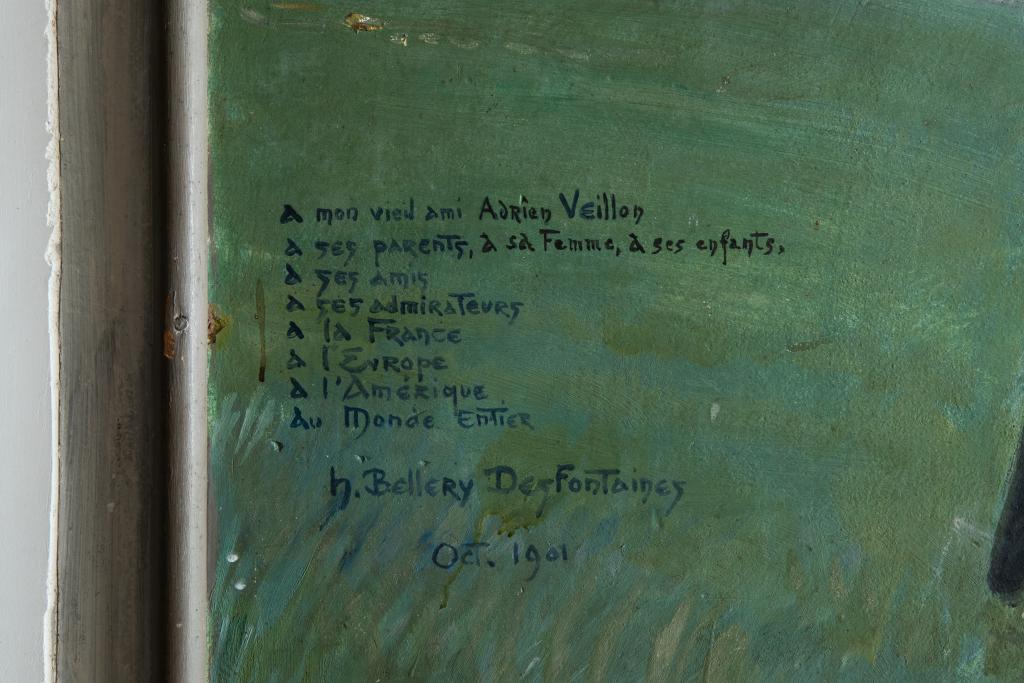 a mon vieil ami Adrien Veillon
a ses parents, à sa Femme, à ses enfants,
à ses amis
a ses admirateurs
a la France
a l'Europe
à l'Amérique
au Monde Entier
h. Bellery DesFontaines
Oct. 1901